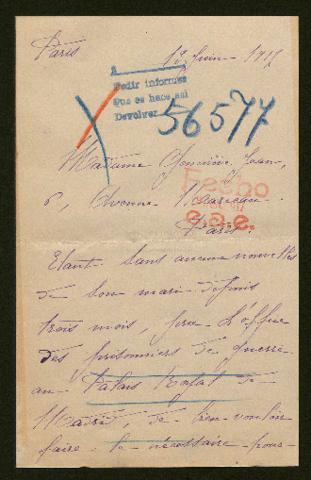 Paris 12 Juin 1917
A
Pedir informes
Que se hace así
Devolver
56577
Madame Jean,
6, Avenue
Fecho
Paris.
Etant sans aucune nouvelles
de son mari depuis
trois mois, prie l'office
des prisonniers de guerre
au Palais Royal de
Madrid, de bien vouloir
faire le nécessaire pour